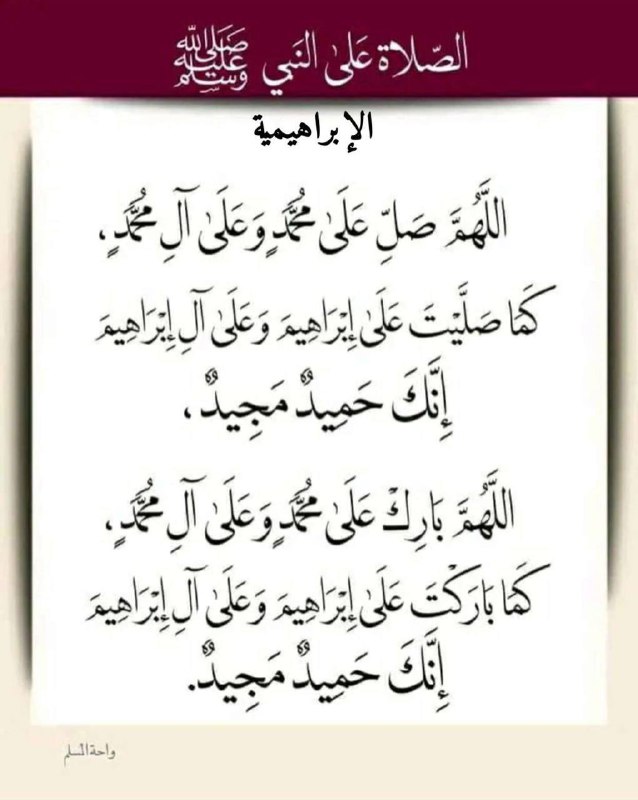 الصّلاة عَلىٰ النَبي ﷺ
الإبراهيمية
اللَّهُمَّ صَلِّ عَلَىٰ مُحَمَّدٍ وَعَلَىٰ آلِ مُحَمَّدٍ،
كَمَا صَلَّيْتَ عَلَىٰ إِبْرَاهِيمَ وَعَلَىٰ آلِ إِبْرَاهِيمَ
إِنَّكَ حَمِيدٌ مَجِيدٌ،
اللَّهُمَّ بَارِكْ عَلَىٰ مُحَمَّدٍ وَعَلَىٰ آلِ مُحَمَّدٍ،
كَمَا بَارَكْتَ عَلَىٰ إِبْرَاهِيمَ وَعَلَىٰ آلِ إِبْرَاهِيمَ
إِنَّكَ حَمِيدٌ مَجِيدٌ.
واحة المسلم